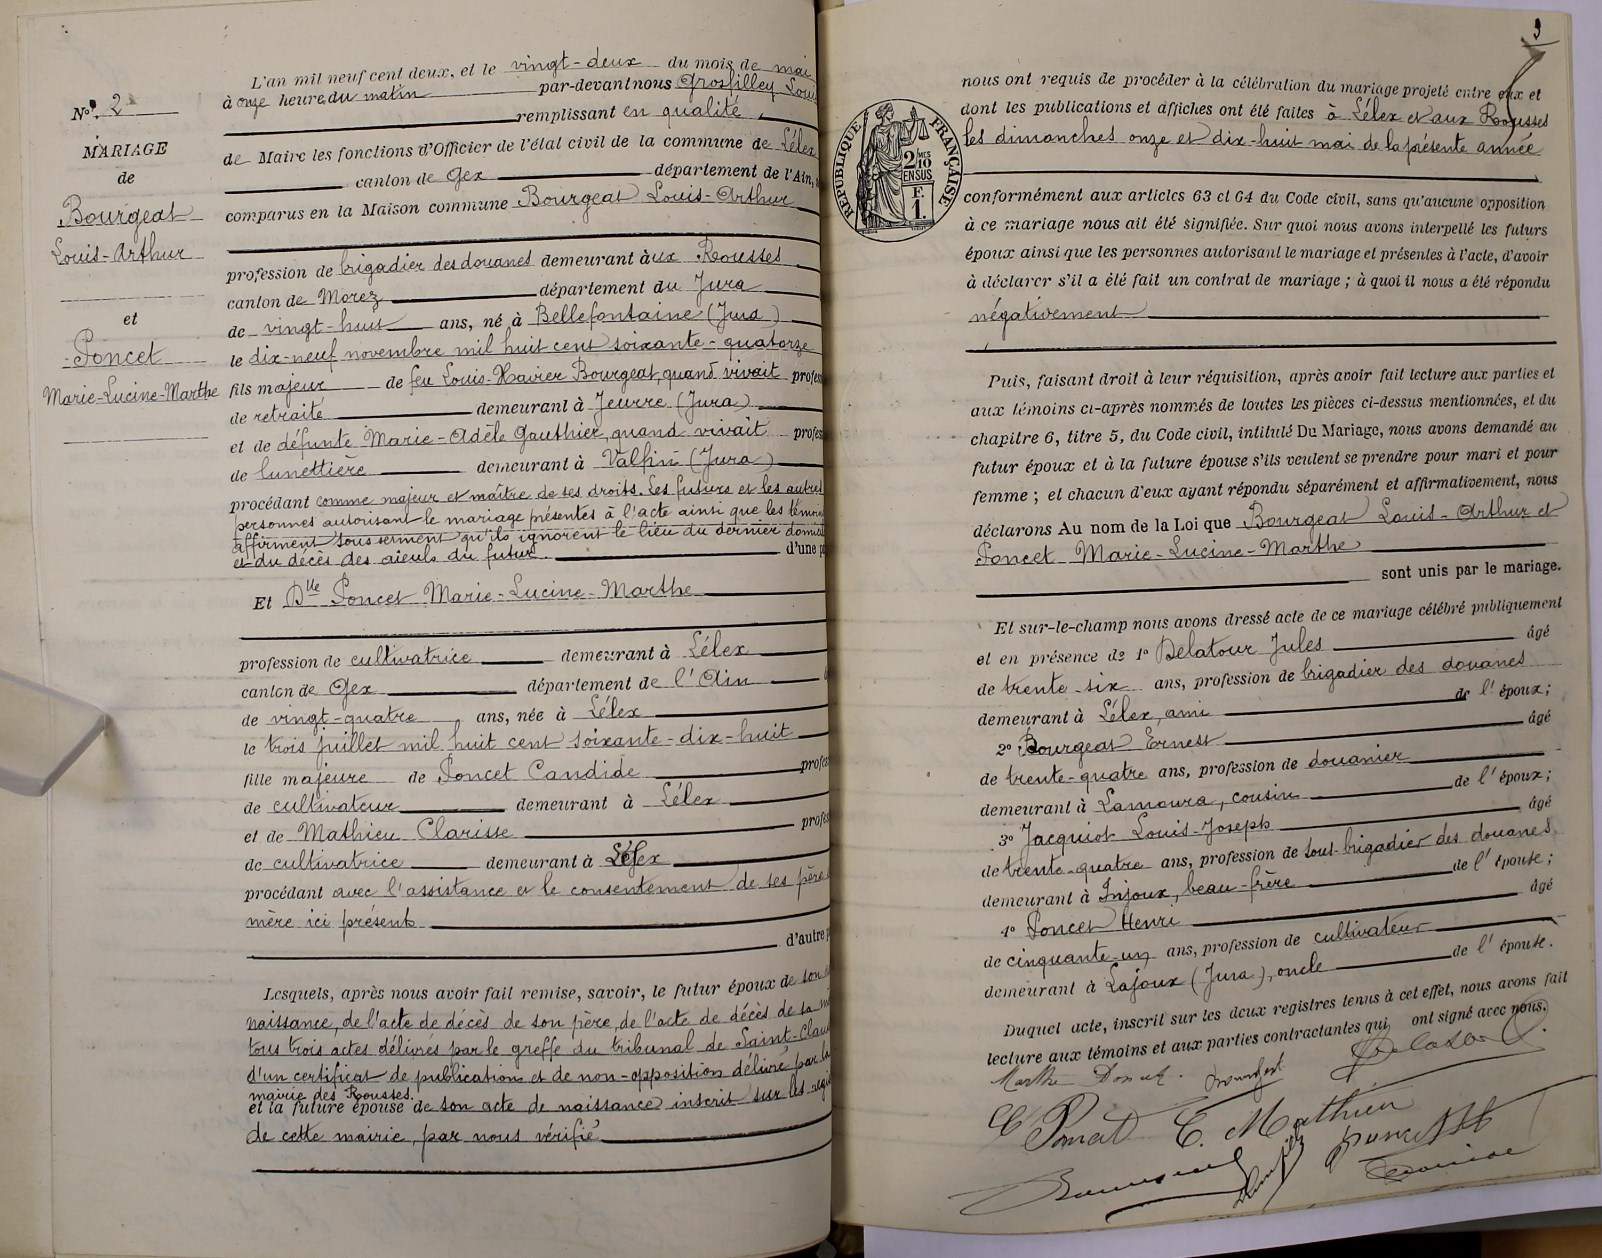 N° 2
MARIAGE
de
Bourgeat
Louis-Arthur
et
Poncet
Marie-Lucine-Marthe
L'an mil neuf cent deux, et le vingt-deux du mois de mai
à onze heure du matin par-devant nous Grosfilley Loui
remplissant en qualité
de Maire les fonctions d'Officier de l'état civil de la commune de Lélex
canton de Gex département de l'Ain,
comparus en la Maison commune Bourgeat Louis-Arthur
profession de brigadier des douanes demeurant aux Rousses
canton de Morez département du Jura
de vingt-huit ans, né à Bellefontaine (Jura)
le dix-neuf novembre mil huit cent soixante-quatorze
fils majeur de feu Louis-Xavier Bourgeat, quand vivait profes
de retraité demeurant à Jeurre (Jura)
et de défunte Marie-Adèle Gauthier, quand vivait profes
de lunettière demeurant à Valfin (Jura)
procédant comme majeur et maître de ses droits. Les futurs et les autres
personnes autorisant le mariage présentes à l'acte ainsi que les témoins
affirment sous serment qu'ils ignorent le lieu du dernier domici
et du décès des aïeuls du futur d'une p
Et Dlle Poncet Marie-Lucine-Marthe
profession de cultivatrice demeurant à Lélex
canton de Gex département de l'Ain
de vingt-quatre ans, née à Lélex
le trois juillet mil huit cent soixante-dix-huit
fille majeure de Poncet Candide profes
de cultivateur demeurant à Lélex
et de Mathieu Clarisse profes
de cultivatrice demeurant à Lélex
procédant avec l'assistance et le consentement de ses père
mère ici présents
d'autre p
Lesquels, après nous avoir fait remise, savoir, le futur époux de son
naissance, de l'acte de décès de son père, de l'acte de décès de sa m
tous trois actes délivrés par le greffe du tribunal de Saint-Clau
d'un certificat de publications et de non-opposition délivré par la
mairie des Rousses.
et la future épouse de son acte de naissance inscrit sur les regi
de cette mairie, par nous vérifié
9
RÉPUBLIQUE FRANÇAISE
2 MES
10
EN SUS
F.
1.
nous ont requis de procéder à la célébration du mariage projeté entre eux et
dont les publications et affiches ont été faites à Lélex et aux Rousses
les dimanches onze et dix-huit mai de la présente année
conformément aux articles 63 et 64 du Code civil, sans qu'aucune opposition
à ce mariage nous ait été signifiée. Sur quoi nous avons interpellé les futurs
époux ainsi que les personnes autorisant le mariage et présentes à l'acte, d'avoir
à déclarer s'il a été fait un contrat de mariage ; à quoi il nous a été répondu
négativement
Puis, faisant droit à leur réquisition, après avoir fait lecture aux parties et
aux témoins ci-après nommés de toutes les pièces ci-dessus mentionnées, et du
chapitre 6, titre 5, du Code civil, intitulé Du Mariage, nous avons demandé au
futur époux et à la future épouse s'ils veulent se prendre pour mari et pour
femme ; et chacun d'eux ayant répondu séparément et affirmativement, nous
déclarons Au nom de la Loi que Bourgeat Louis-Arthur et
Poncet Marie-Lucine-Marthe
sont unis par le mariage.
Et sur-le-champ nous avons dressé acte de ce mariage célébré publiquement
et en présence de 1° Delatour Jules âgé
de trente-six ans, profession de brigadier des douanes
demeurant à Lélex, ami de l'époux;
2° Bourgeat Ernest âgé
de trente-quatre ans, profession de douanier
demeurant à Lamoura, cousin de l'époux;
3° Jacquiot Louis-Joseph âgé
de trente-quatre ans, profession de sous-brigadier des douanes
demeurant à Injoux, beau-frère de l'épouse;
4° Poncet Henri âgé
de cinquante-un ans, profession de cultivateur
demeurant à Lajoux (Jura), oncle de l'épouse.
Duquel acte, inscrit sur les deux registres tenus à cet effet, nous avons fait
lecture aux témoins et aux parties contractantes qui ont signé avec nous.
Marthe Poncet. Bourgeat Delatour
C Poncet C. Mathieu
Poncet H